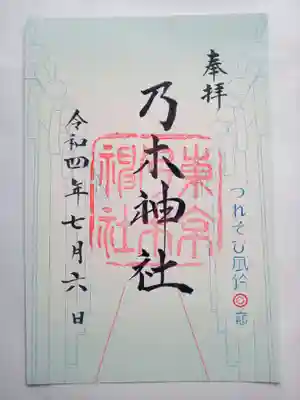 奉拝
つれそひ風鈴
乃木神社
東京
神社
令和四年七月六日